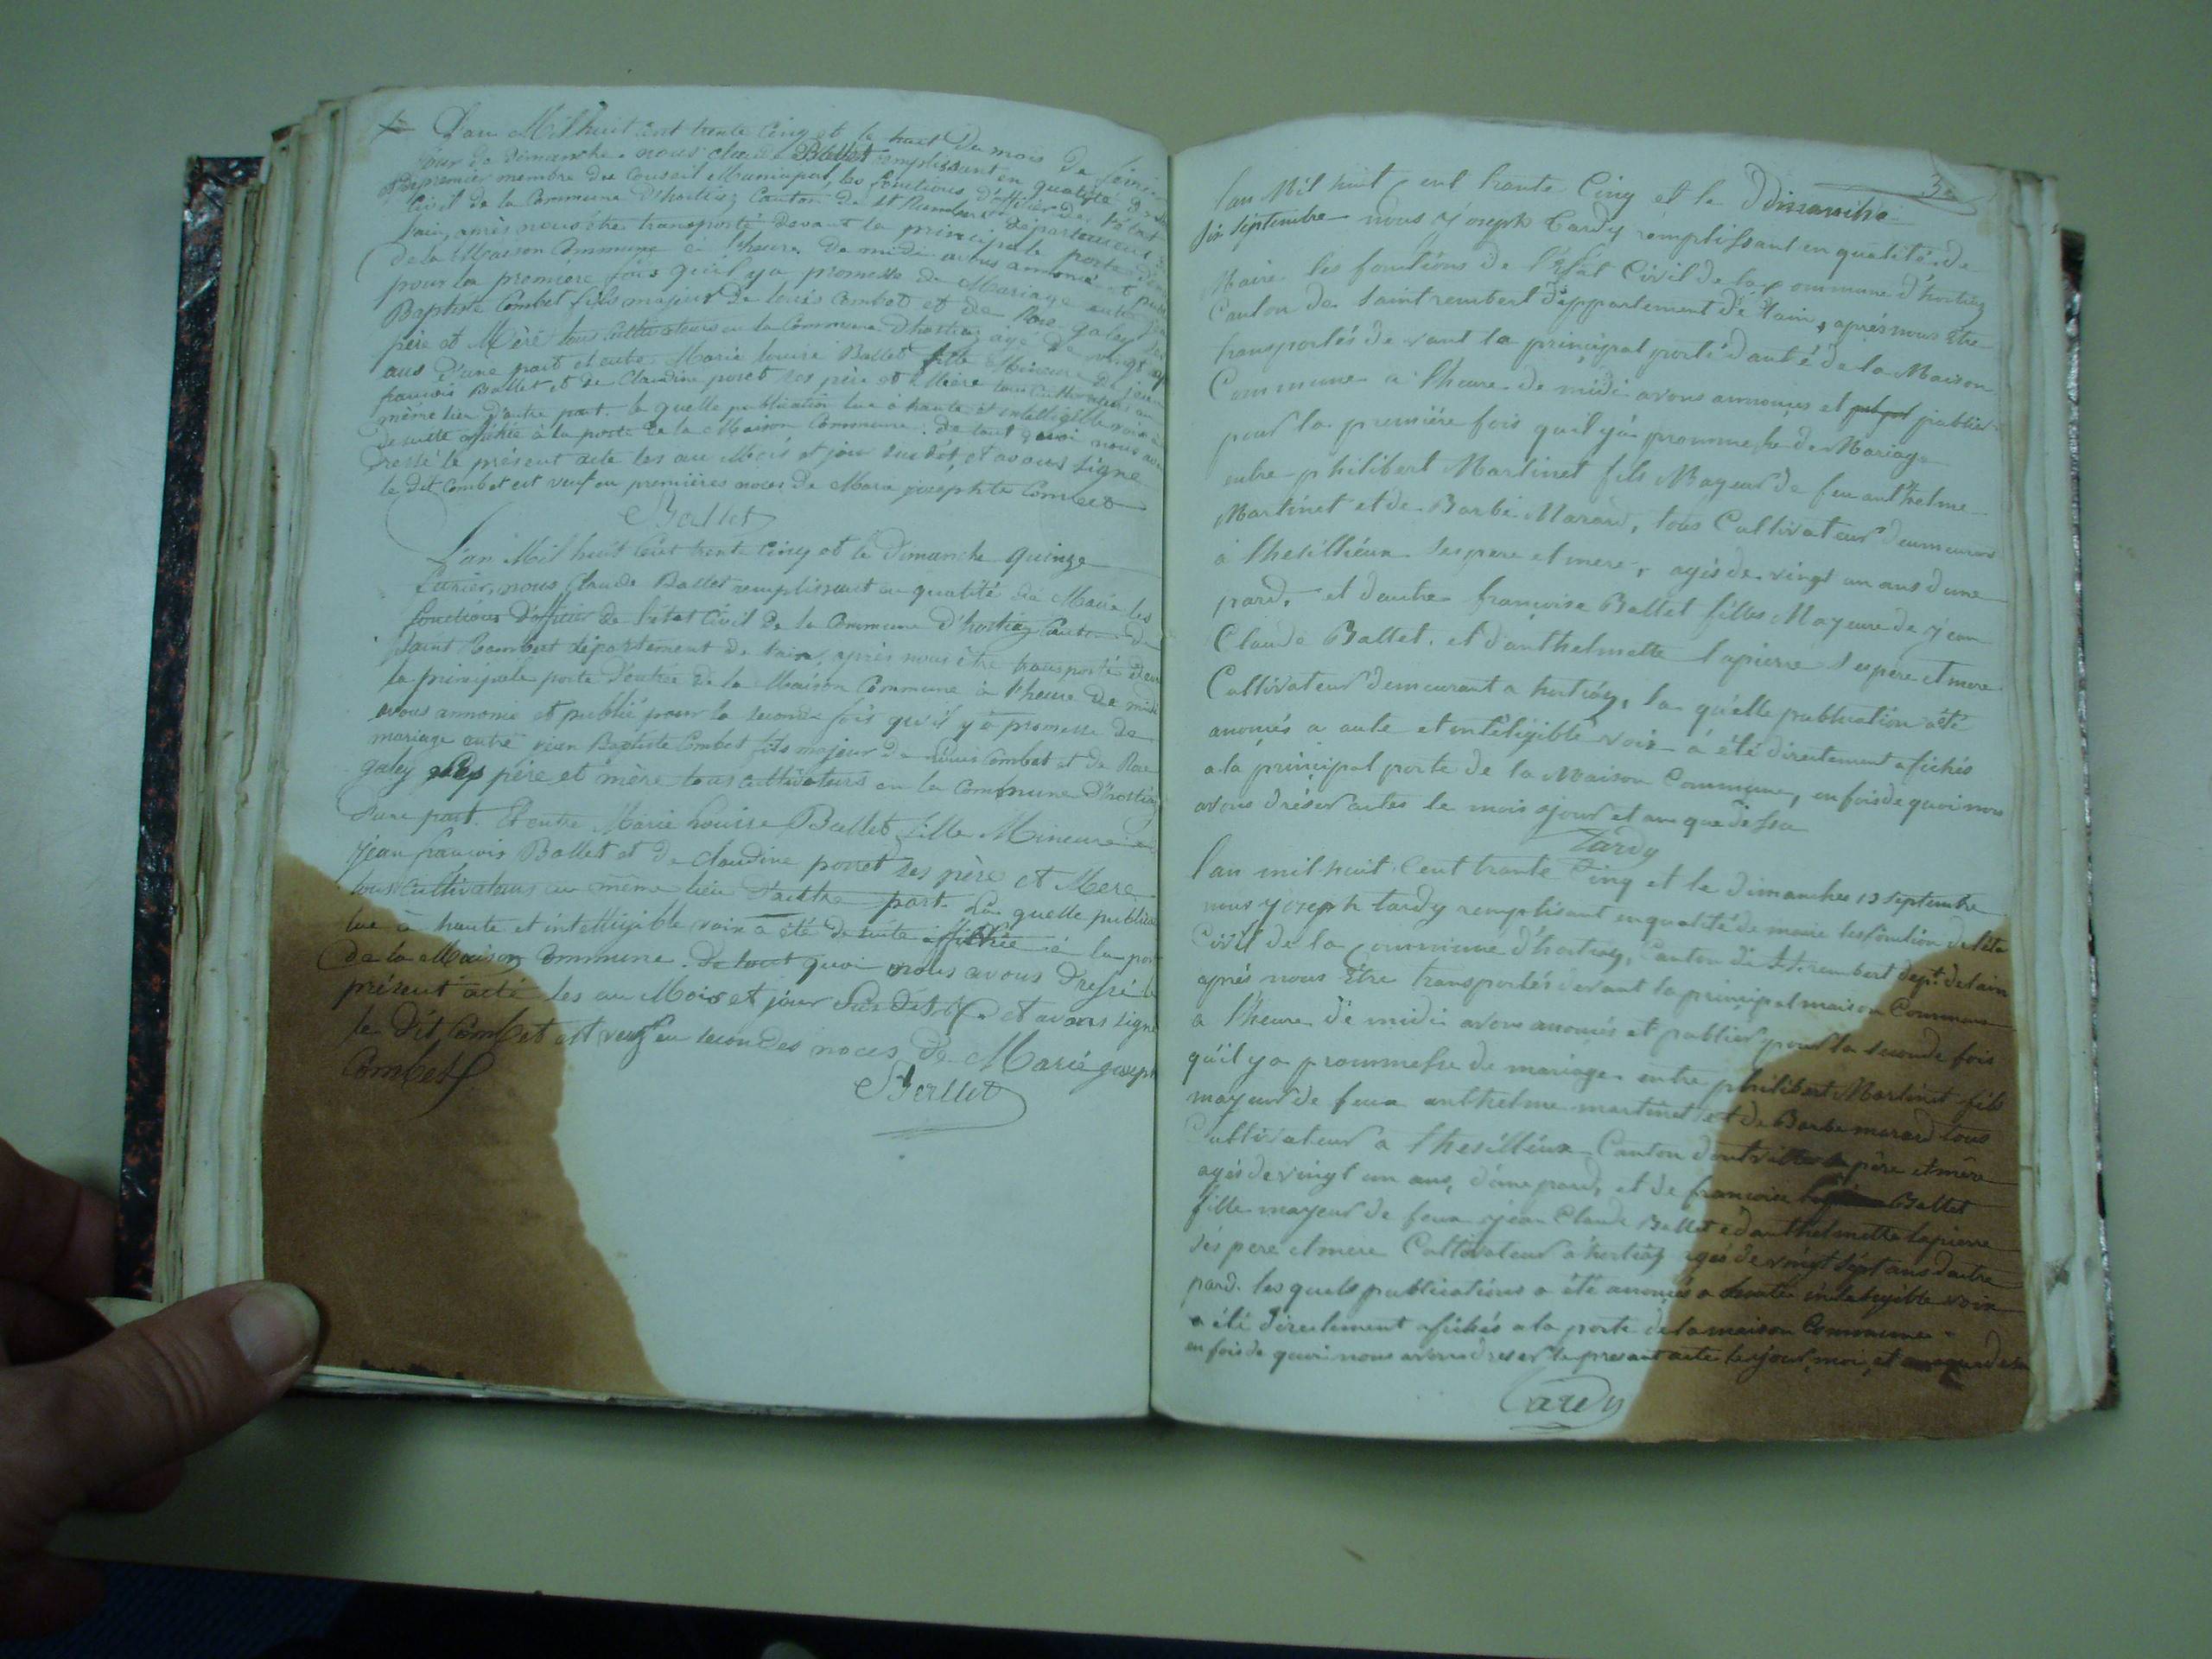 L'an Mil huit cent trente cinq et le huit du mois de février
jour de dimanche. nous claude Ballet remplissant en qualité
premier membre du Conseil Municipal, les fonctions d'officier de l'état
Civil de la Commune D'hostiaz Canton de St Rambert département de
l'ain, après nous être transporté devant la principale porte
de la Maison Commune à l'heure de midi avons annoncé et
pour la première fois qu'il y a promesse de Mariage entre
Baptiste Combet fils majeur de louis Combet et de Rose galey ses
père et Mère tous cultivateurs en la Commune D'hostiaz âgé de
ans D'une part et entre Marie louise Ballet fille Mineure de jean
françois Ballet et de Claudine porret ses père et Mère tous cultivateurs au
même lieu d'autre part. la quelle publication lue à haute et intelligible voix a
de suite affichée à la porte de la Maison Commune. De tout quoi nous avons
dressé le présent acte les an Mois et jour susdit, et avons signé
le dit Combet est veuf en premières noces de Marie josephte Combet
Ballet
L'an Mil huit Cent trente Cinq et le Dimanche quinze
février, nous Claude Ballet remplissant en qualité de Maire les
fonctions D'officier de l'état Civil de la Commune D'hostiaz Canton de
Saint Rambert département de l'ain, après nous être transporté devant
la principale porte D'entrée de la Maison Commune à l'heure de midi
avons annoncé et publié pour la seconde fois qu'il y a promesse de
mariage entre jean Baptiste Combet fils majeur de louis Combet et de Rose
galey ses père et mère tous cultivateurs en la Commune D'hostiaz
D'une part. Et entre Marie louise Ballet fille Mineure de
jean françois Ballet et de Claudine porret ses père et Mere
tous Cultivateurs au même lieu D'autre part. La quelle publication
lue à haute et intelligible voix a été de suite affichée à la porte
de la Maison Commune. De tout quoi nous avons dressé le
présent acte les an Mois et jour Susdit et avons signé
le Dit Combet est veuf en secondes noces de Marie joseph
Combet
Ballet
3
l'an Mil huit Cent trante Cinq et le Dimanche
six Septembre nous Joseph Tardy remplissant en qualité de
Maire les fonctions de l'Etat Civil de la Commune d'hostiaz
Canton de Saint rembert deppartement de l'ain, après nous Etre
transportés de vant la principal porte d'antré de la Maison
Commune a l'heure de midi avons annonçes et publier
pour la première fois qu'il y a prommesse de Mariage
entre philibert Martinet fils Mayeur de feu anthelme
Martinet et de Barbe Marard, tous Cultivateur deumeurant
à thesillieux ses pere et mere, agés de vingt un ans d'une
pard. et d'autre françoise Ballet filles Mayeure de jean
Claude Ballet, et d'anthelmette lapierre ses pere et mere
Cultivateur demeurant a hostiaz, la quelle publication a été
anonçés a aute et inteligible voix a été directement afichés
a la principal porte de la Maison Commune, en fois de quoi nous
avons dréser actes le mois jour et an que dessu
Tardy
l'an mil huit Cent trante Cinq et le dimanches 13 septembre
nous yoseph tardy remplisant en qualité de maire les fonction de l'état
Civil de la Commune d'hostiaz, Canton de St rembert dept. de lain
après nous Etre transportés devant la principal maison Commune
a l'heure de midi avons anonçés et publier pour la seconde fois
qu'il y a prommesse de mariage entre philibert Martinet fils
mayeur de feux anthelme martinet et de Barbe marard tous
Cultivateur a thesillieux Canton père et mère
agés de vingt un ans, d'une pard, et de françoise Ballet
fille mayeur de feux jean Claude Ballet ed anthelmette lapierre
sés pere et mere Cultivateur a hostiaz agés de vingt sépt ans dautre
pard. les quels publications a été anonçés a haute inteligible voix
a été directement afichés a la porte de la maison Commune
en fois de quoi nous avons dreser le presant acte les jour, moi, et
Tardy